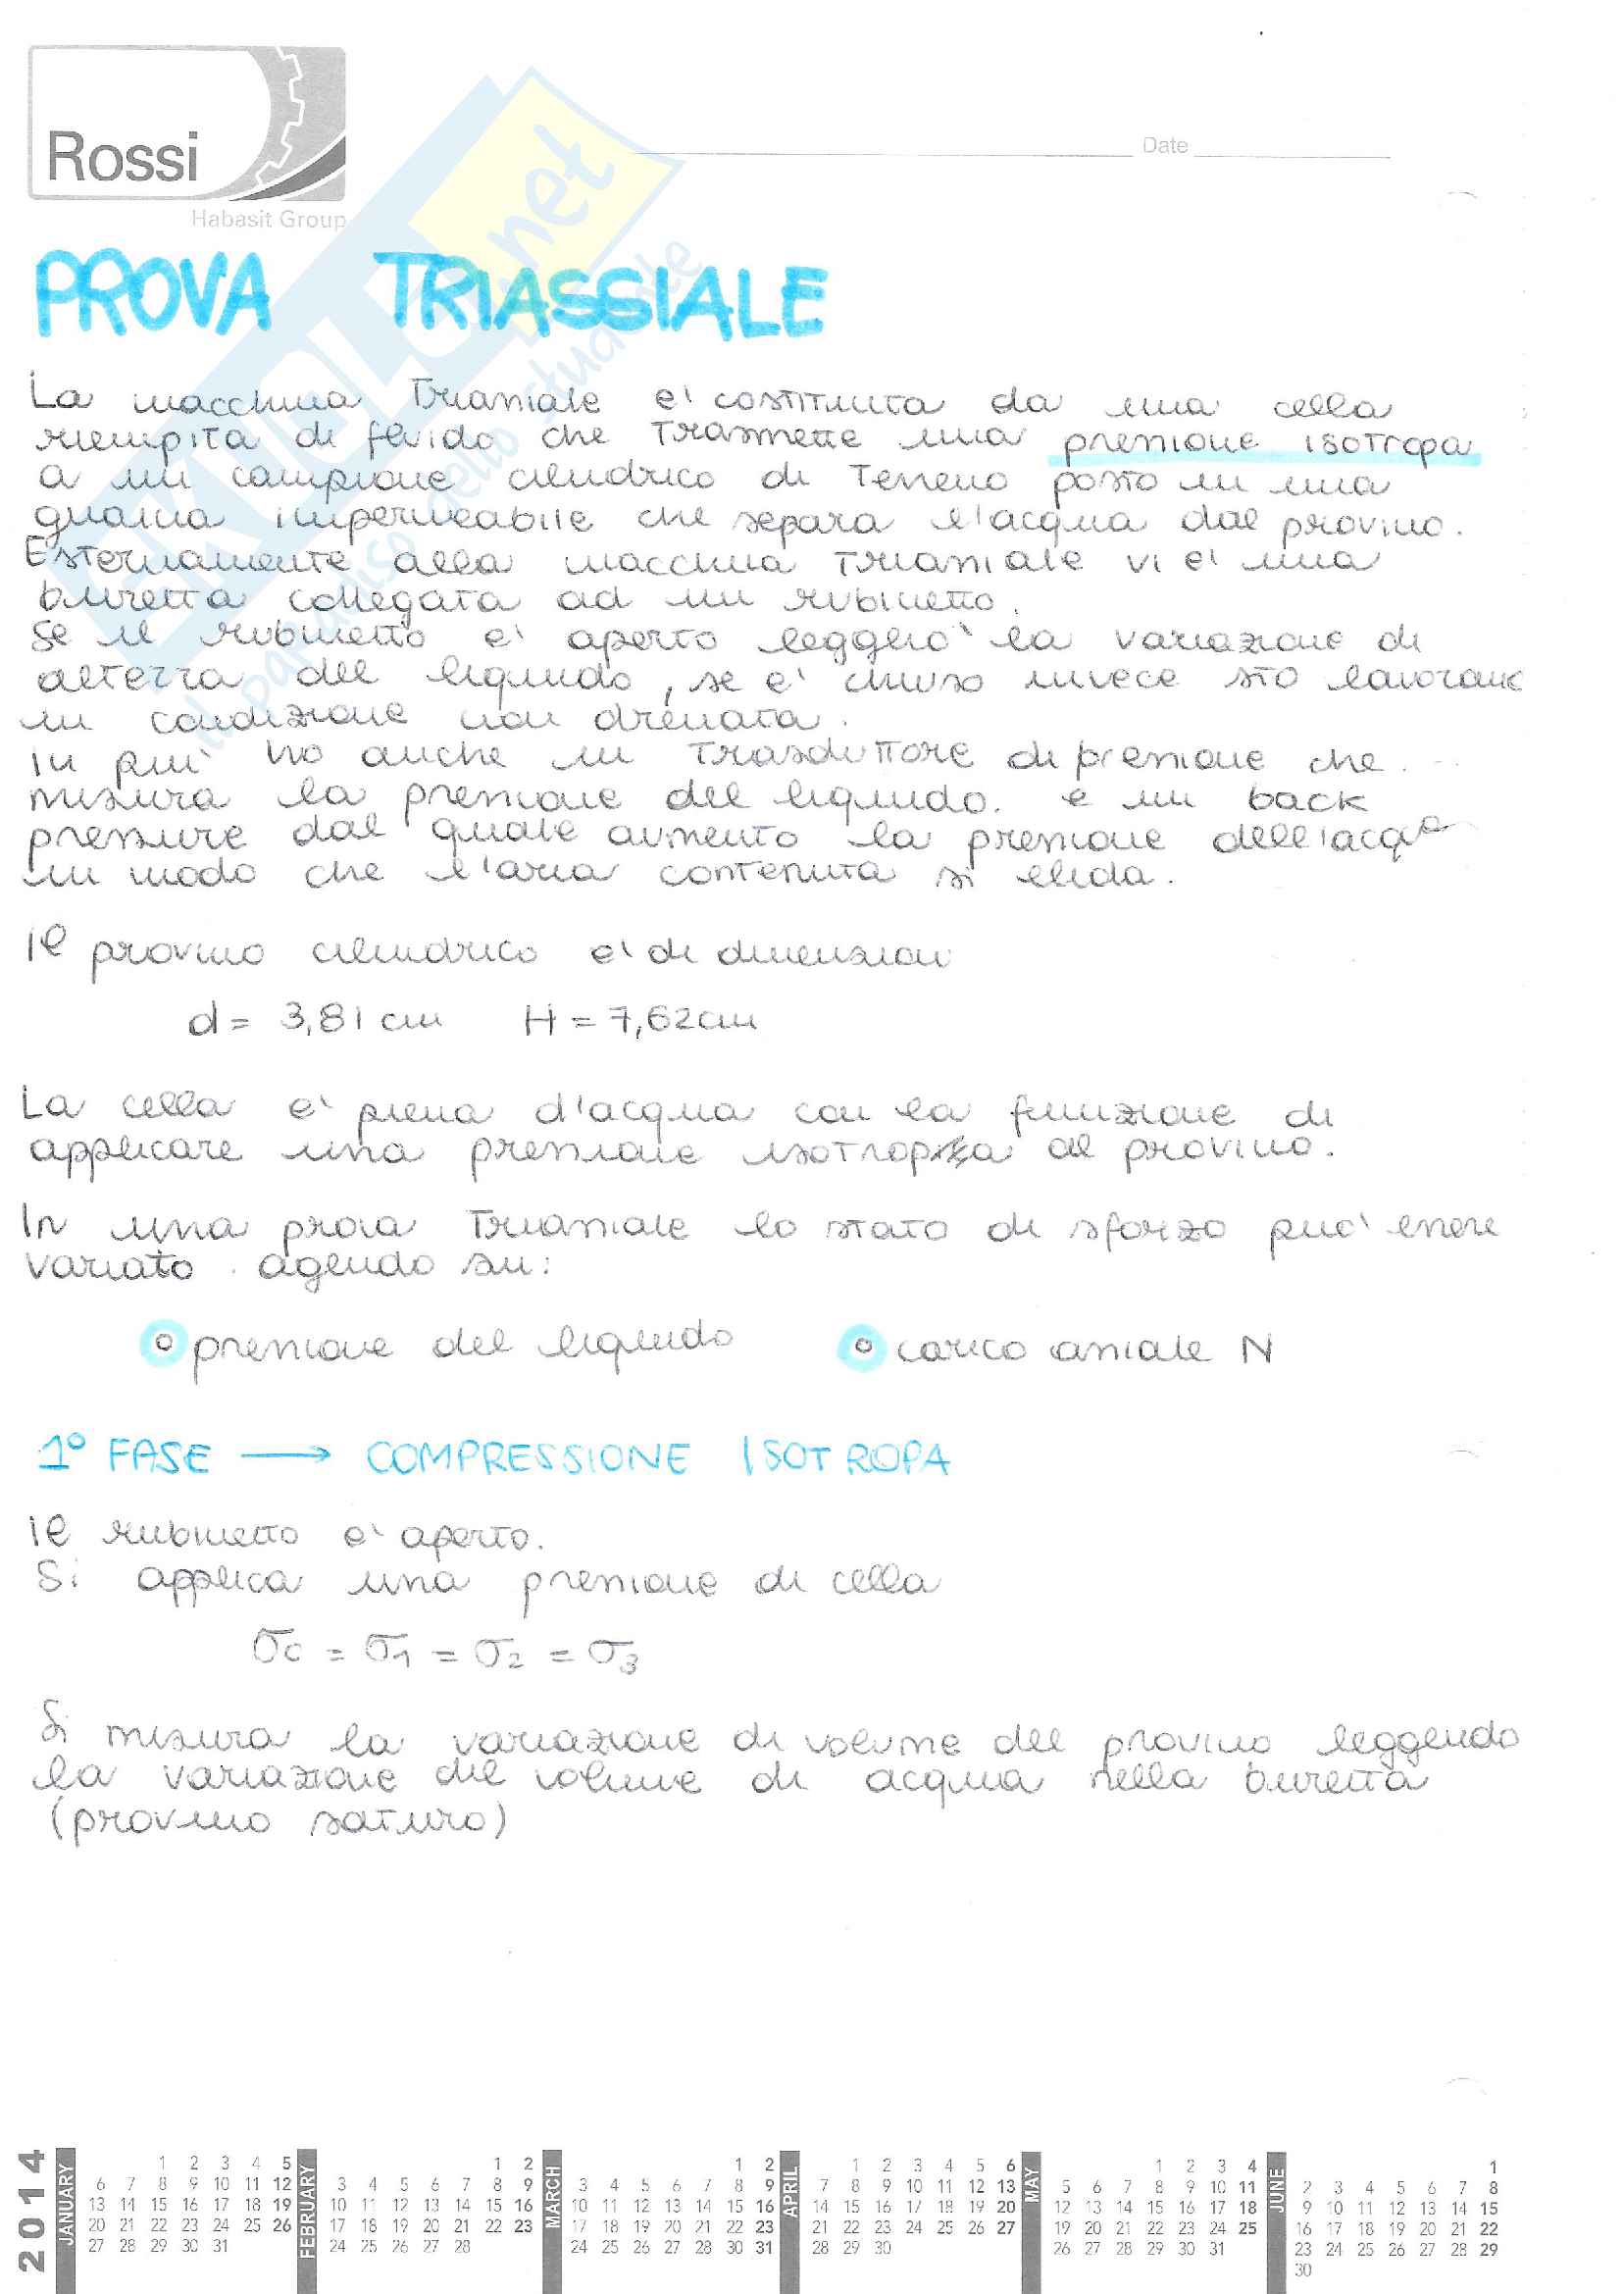 Rossi
Habasit Group
Date
PROVA TRIASSIALE
La macchina Triassiale e' costituita da una cella
riempita di fluido che trasmette una pressione isotropa
a un campione cilindrico di terreno posto in una
guaina impermeabile che separa l'acqua dal provino.
Esternamente alla macchina triassiale vi e' una
buretta collegata ad un rubinetto.
Se il rubinetto e' aperto leggero' la variazione di
altezza del liquido, se e' chiuso invece sto lavorando
in condizione non drenata.
In piu' ho anche un trasduttore di pressione che
misura la pressione del liquido. e un back
pressure dal quale aumento la pressione dell'acqua
in modo che l'aria contenuta si elida.
Il provino cilindrico e' di dimensioni
d = 3,81 cm H = 7,62 cm
La cella e' piena d'acqua con la funzione di
applicare una pressione isotropa al provino.
In una prova Triassiale lo stato di sforzo puo' essere
variato agendo su:
pressione del liquido carico assiale N
1° FASE → COMPRESSIONE ISOTROPA
Il rubinetto e' aperto.
Si applica una pressione di cella
σc = σ1 = σ2 = σ3
Si misura la variazione di volume del provino leggendo
la variazione del volume di acqua nella buretta
(provino saturo)
2014
JANUARY
1 2 3 4 5
6 7 8 9 10 11 12
13 14 15 16 17 18 19
20 21 22 23 24 25 26
27 28 29 30 31
FEBRUARY
1 2
3 4 5 6 7 8 9
10 11 12 13 14 15 16
17 18 19 20 21 22 23
24 25 26 27 28
MARCH
1 2
3 4 5 6 7 8 9
10 11 12 13 14 15 16
17 18 19 20 21 22 23
24 25 26 27 28 30 31
APRIL
1 2 3 4 5 6
7 8 9 10 11 12 13
14 15 16 17 18 19 20
21 22 23 24 25 26 27
28 29 30
MAY
1 2 3 4
5 6 7 8 9 10 11
12 13 14 15 16 17 18
19 20 21 22 23 24 25
26 27 28 29 30 31
JUNE
1
2 3 4 5 6 7 8
9 10 11 12 13 14 15
16 17 18 19 20 21 22
23 24 25 26 27 28 29
30